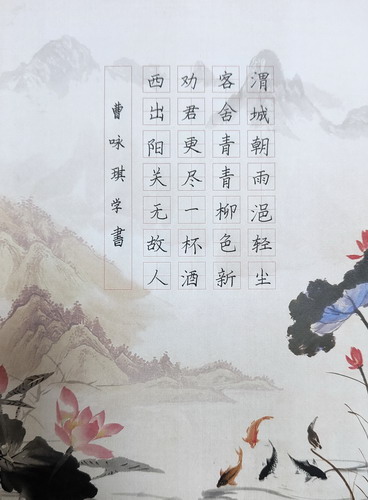 渭城朝雨浥轻尘
客舍青青柳色新
劝君更尽一杯酒
西出阳关无故人
曹咏琪学書